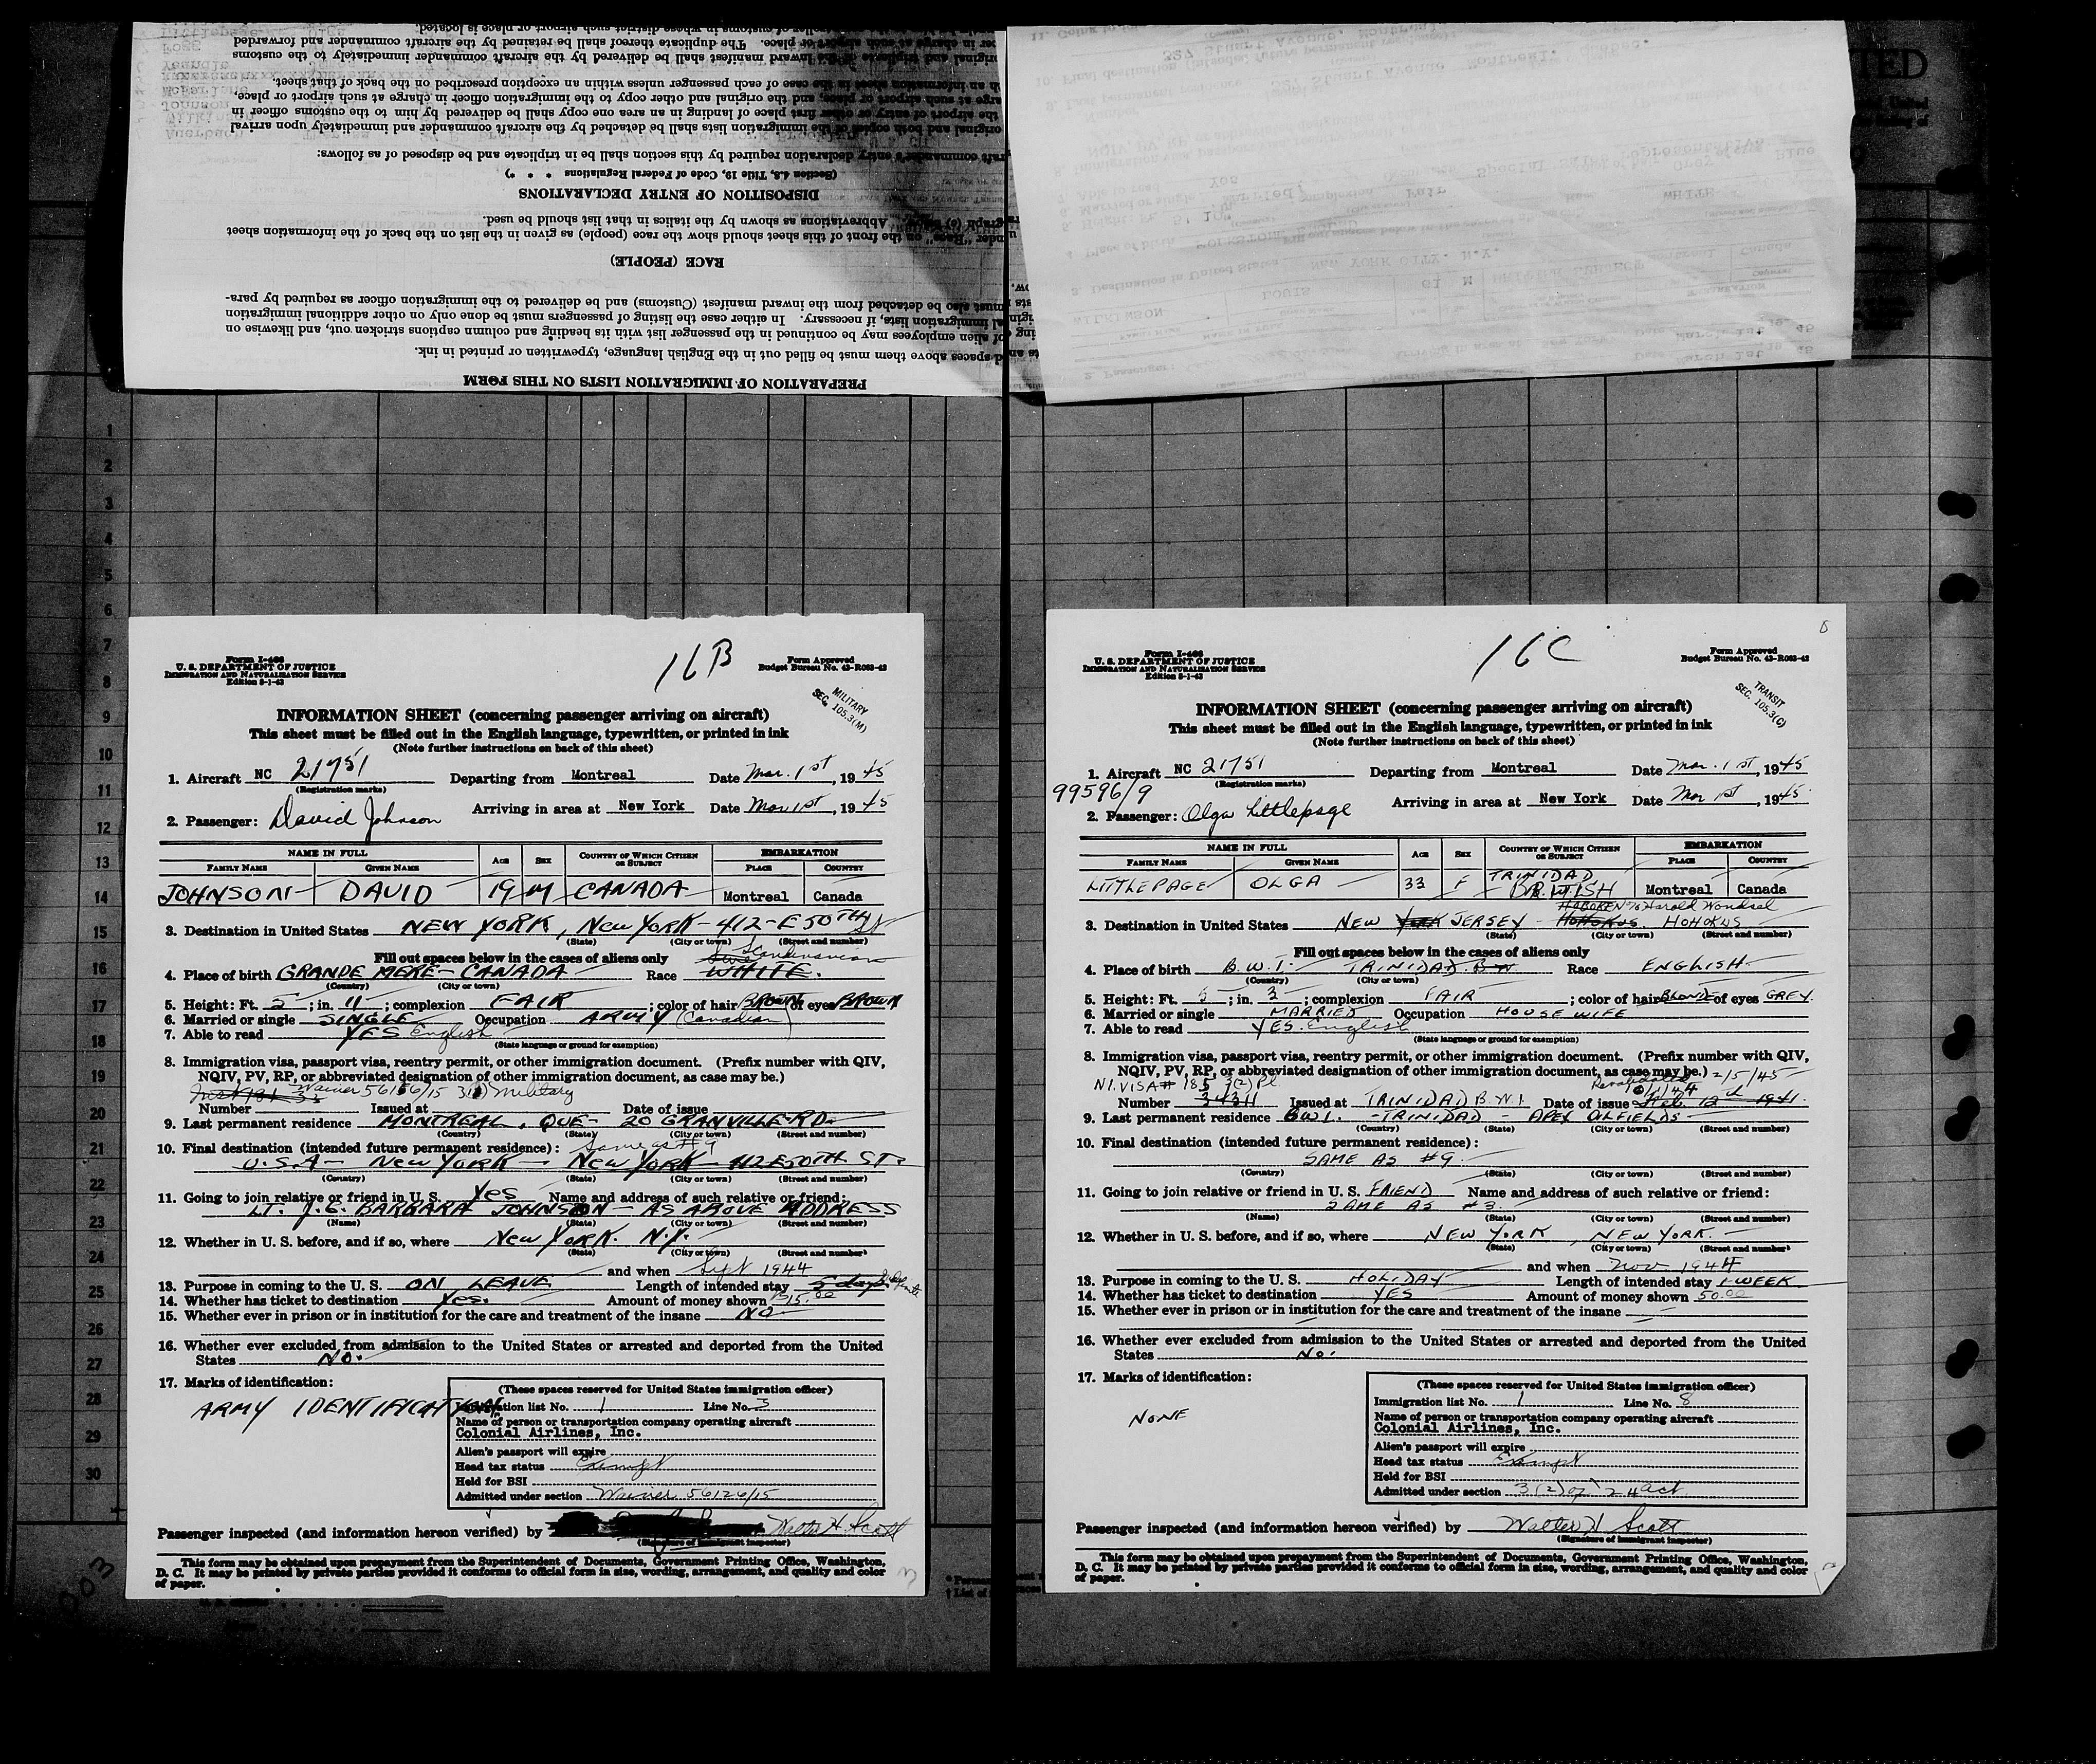 ller of customs in whose district such airport or place is located.
er in charge at such airport or place. The duplicate thereof shall be retained by the aircraft commander and forwarded
original and triplicate of the inward manifest shall be delivered by the aircraft commander immediately to the customs
h an information sheet in the case of each passenger unless within an exception prescribed on the back of that sheet.
arge at such airport or place, and the original and other copy to the immigration officer in charge at such airport or place,
the airport of entry or other first place of landing in an area one copy shall be delivered by him to the customs officer in
original and both copies of the immigration lists shall be detached by the aircraft commander and immediately upon arrival
raft commander's entry declaration required by this section shall be in triplicate and be disposed of as follows:
(Section 4.8, Title 19, Code of Federal Regulations * * *)
DISPOSITION OF ENTRY DECLARATIONS
ragraph (c) below. Abbreviations as shown by the italics in that list should be used.
under "Race" on the front of this sheet should show the race (people) as given in the list on the back of the information sheet
RACE (PEOPLE)
ow.
sts must also be detached from the inward manifest (Customs) and be delivered to the immigration officer as required by para-
iginal immigration lists, if necessary. In either case the listing of passengers must be done only on other additional immigration
ing of alien employees may be continued in the passenger list with its heading and column captions stricken out, and likewise on
ts and spaces above them must be filled out in the English language, typewritten or printed in ink.
PREPARATION OF IMMIGRATION LISTS ON THIS FORM
1
2
3
4
5
6
7
8
9
10
11
12
13
14
15
16
17
18
19
20
21
22
23
24
25
26
27
28
29
30
Form I-466
U. S. DEPARTMENT OF JUSTICE
IMMIGRATION AND NATURALIZATION SERVICE
Edition 5-1-43
16B
Form Approved
Budget Bureau No. 43-R083-42
MILITARY
SEC. 105.3(M)
INFORMATION SHEET (concerning passenger arriving on aircraft)
This sheet must be filled out in the English language, typewritten, or printed in ink
(Note further instructions on back of this sheet)
1. Aircraft NC 21751 Departing from Montreal Date Mar. 1st, 1945
(Registration marks)
Arriving in area at New York Date Mar 1st, 1945
2. Passenger: David Johnson
NAME IN FULL AGE SEX COUNTRY OF WHICH CITIZEN OR SUBJECT EMBARKATION
FAMILY NAME GIVEN NAME PLACE COUNTRY
JOHNSON DAVID 19 M CANADA Montreal Canada
3. Destination in United States NEW YORK, NEW YORK - 412-E 50TH ST
(State) (City or town) (Street and number)
Fill out spaces below in the cases of aliens only Scandinavian
4. Place of birth GRANDE MERE - CANADA Race WHITE.
(Country) (City or town)
5. Height: Ft. 5; in. 11; complexion FAIR; color of hair BROWN of eyes BROWN
6. Married or single SINGLE Occupation ARMY (Canadian)
7. Able to read YES English
(State language or ground for exemption)
8. Immigration visa, passport visa, reentry permit, or other immigration document. (Prefix number with QIV,
NQIV, PV, RP, or abbreviated designation of other immigration document, as case may be.)
Waiver 56126/15 Military
Number Issued at Date of issue
9. Last permanent residence MONTREAL, QUE - 20 GRANVILLE RD.
(Country) (State) (City or town) (Street and number)
10. Final destination (intended future permanent residence): Same as #9
U.S.A - NEW YORK - NEW YORK - 412 E 50TH ST.
(Country) (State) (City or town) (Street and number)
11. Going to join relative or friend in U. S. Yes Name and address of such relative or friend:
LT. J.G. BARBARA JOHNSON - AS ABOVE ADDRESS
(Name) (State) (City or town) (Street and number)
12. Whether in U. S. before, and if so, where NEW YORK. N.Y.
(State) (City or town) (Street and number)
and when Sept 1944
13. Purpose in coming to the U. S. ON LEAVE Length of intended stay 5 days
14. Whether has ticket to destination Yes. Amount of money shown $15.00
15. Whether ever in prison or in institution for the care and treatment of the insane NO
16. Whether ever excluded from admission to the United States or arrested and deported from the United
States NO.
17. Marks of identification:
ARMY IDENTIFICATION
(These spaces reserved for United States immigration officer)
Immigration list No. 1 Line No. 3
Name of person or transportation company operating aircraft
Colonial Airlines, Inc.
Alien's passport will expire
Head tax status Exempt
Held for BSI
Admitted under section Waiver 56126/15
Passenger inspected (and information hereon verified) by Walter H. Scott
(Signature of immigrant inspector)
This form may be obtained upon prepayment from the Superintendent of Documents, Government Printing Office, Washington,
D. C. It may be printed by private parties provided it conforms to official form in size, wording, arrangement, and quality and color
of paper.
Form I-466
U. S. DEPARTMENT OF JUSTICE
IMMIGRATION AND NATURALIZATION SERVICE
Edition 5-1-43
16C
Form Approved
Budget Bureau No. 43-R083-42
TRANSIT
SEC. 105.3(C)
INFORMATION SHEET (concerning passenger arriving on aircraft)
This sheet must be filled out in the English language, typewritten, or printed in ink
(Note further instructions on back of this sheet)
1. Aircraft NC 21751 Departing from Montreal Date Mar. 1st, 1945
(Registration marks)
99596/9
Arriving in area at New York Date Mar 1st, 1945
2. Passenger: Olga Littlepage
NAME IN FULL AGE SEX COUNTRY OF WHICH CITIZEN OR SUBJECT EMBARKATION
FAMILY NAME GIVEN NAME PLACE COUNTRY
LITTLEPAGE OLGA 33 F TRINIDAD BRITISH Montreal Canada
HOBOKEN % Harold Wondsel
3. Destination in United States NEW YORK JERSEY - HOHOKUS. HOHOKUS
(State) (City or town) (Street and number)
Fill out spaces below in the cases of aliens only
4. Place of birth B.W.I. TRINIDAD. Race ENGLISH
(Country) (City or town)
5. Height: Ft. 5; in. 3; complexion FAIR; color of hair BLONDE of eyes GREY.
6. Married or single MARRIED Occupation HOUSE WIFE
7. Able to read YES. English
(State language or ground for exemption)
8. Immigration visa, passport visa, reentry permit, or other immigration document. (Prefix number with QIV,
NQIV, PV, RP, or abbreviated designation of other immigration document, as case may be.) 2/5/45
N.I. VISA # 185 3(2) Revalidated
Number 3431 Issued at TRINIDAD B.W.I. Date of issue Feb. 12th 1941.
9. Last permanent residence BWI. - TRINIDAD - APEX OILFIELDS -
(Country) (State) (City or town) (Street and number)
10. Final destination (intended future permanent residence):
SAME AS #9.
(Country) (State) (City or town) (Street and number)
11. Going to join relative or friend in U. S. FRIEND Name and address of such relative or friend:
SAME AS #3.
(Name) (State) (City or town) (Street and number)
12. Whether in U. S. before, and if so, where NEW YORK, NEW YORK.
(State) (City or town) (Street and number)
and when Nov 1944
13. Purpose in coming to the U. S. HOLIDAY Length of intended stay 1-WEEK
14. Whether has ticket to destination YES Amount of money shown 50.00
15. Whether ever in prison or in institution for the care and treatment of the insane —
16. Whether ever excluded from admission to the United States or arrested and deported from the United
States No.
17. Marks of identification:
NONE
(These spaces reserved for United States immigration officer)
Immigration list No. 1 Line No. 8
Name of person or transportation company operating aircraft
Colonial Airlines, Inc.
Alien's passport will expire
Head tax status Exempt
Held for BSI
Admitted under section 3(2) of 24 act
Passenger inspected (and information hereon verified) by Walter H. Scott
(Signature of immigrant inspector)
This form may be obtained upon prepayment from the Superintendent of Documents, Government Printing Office, Washington,
D. C. It may be printed by private parties provided it conforms to official form in size, wording, arrangement, and quality and color
of paper.